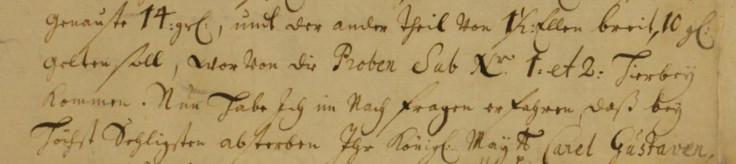 genauste 14: grl:, undt der ander Theil von 1½: Ellen breit, 10 gl:
gelten soll, wor von die Proben Sub Nr: 1: et 2: hierbey
kommen. Nun habe Ich im Nach fragen erfahren, daß bey
höchst Sehligsten absterben Ihr Königl: Maytt Carel Gustaven,